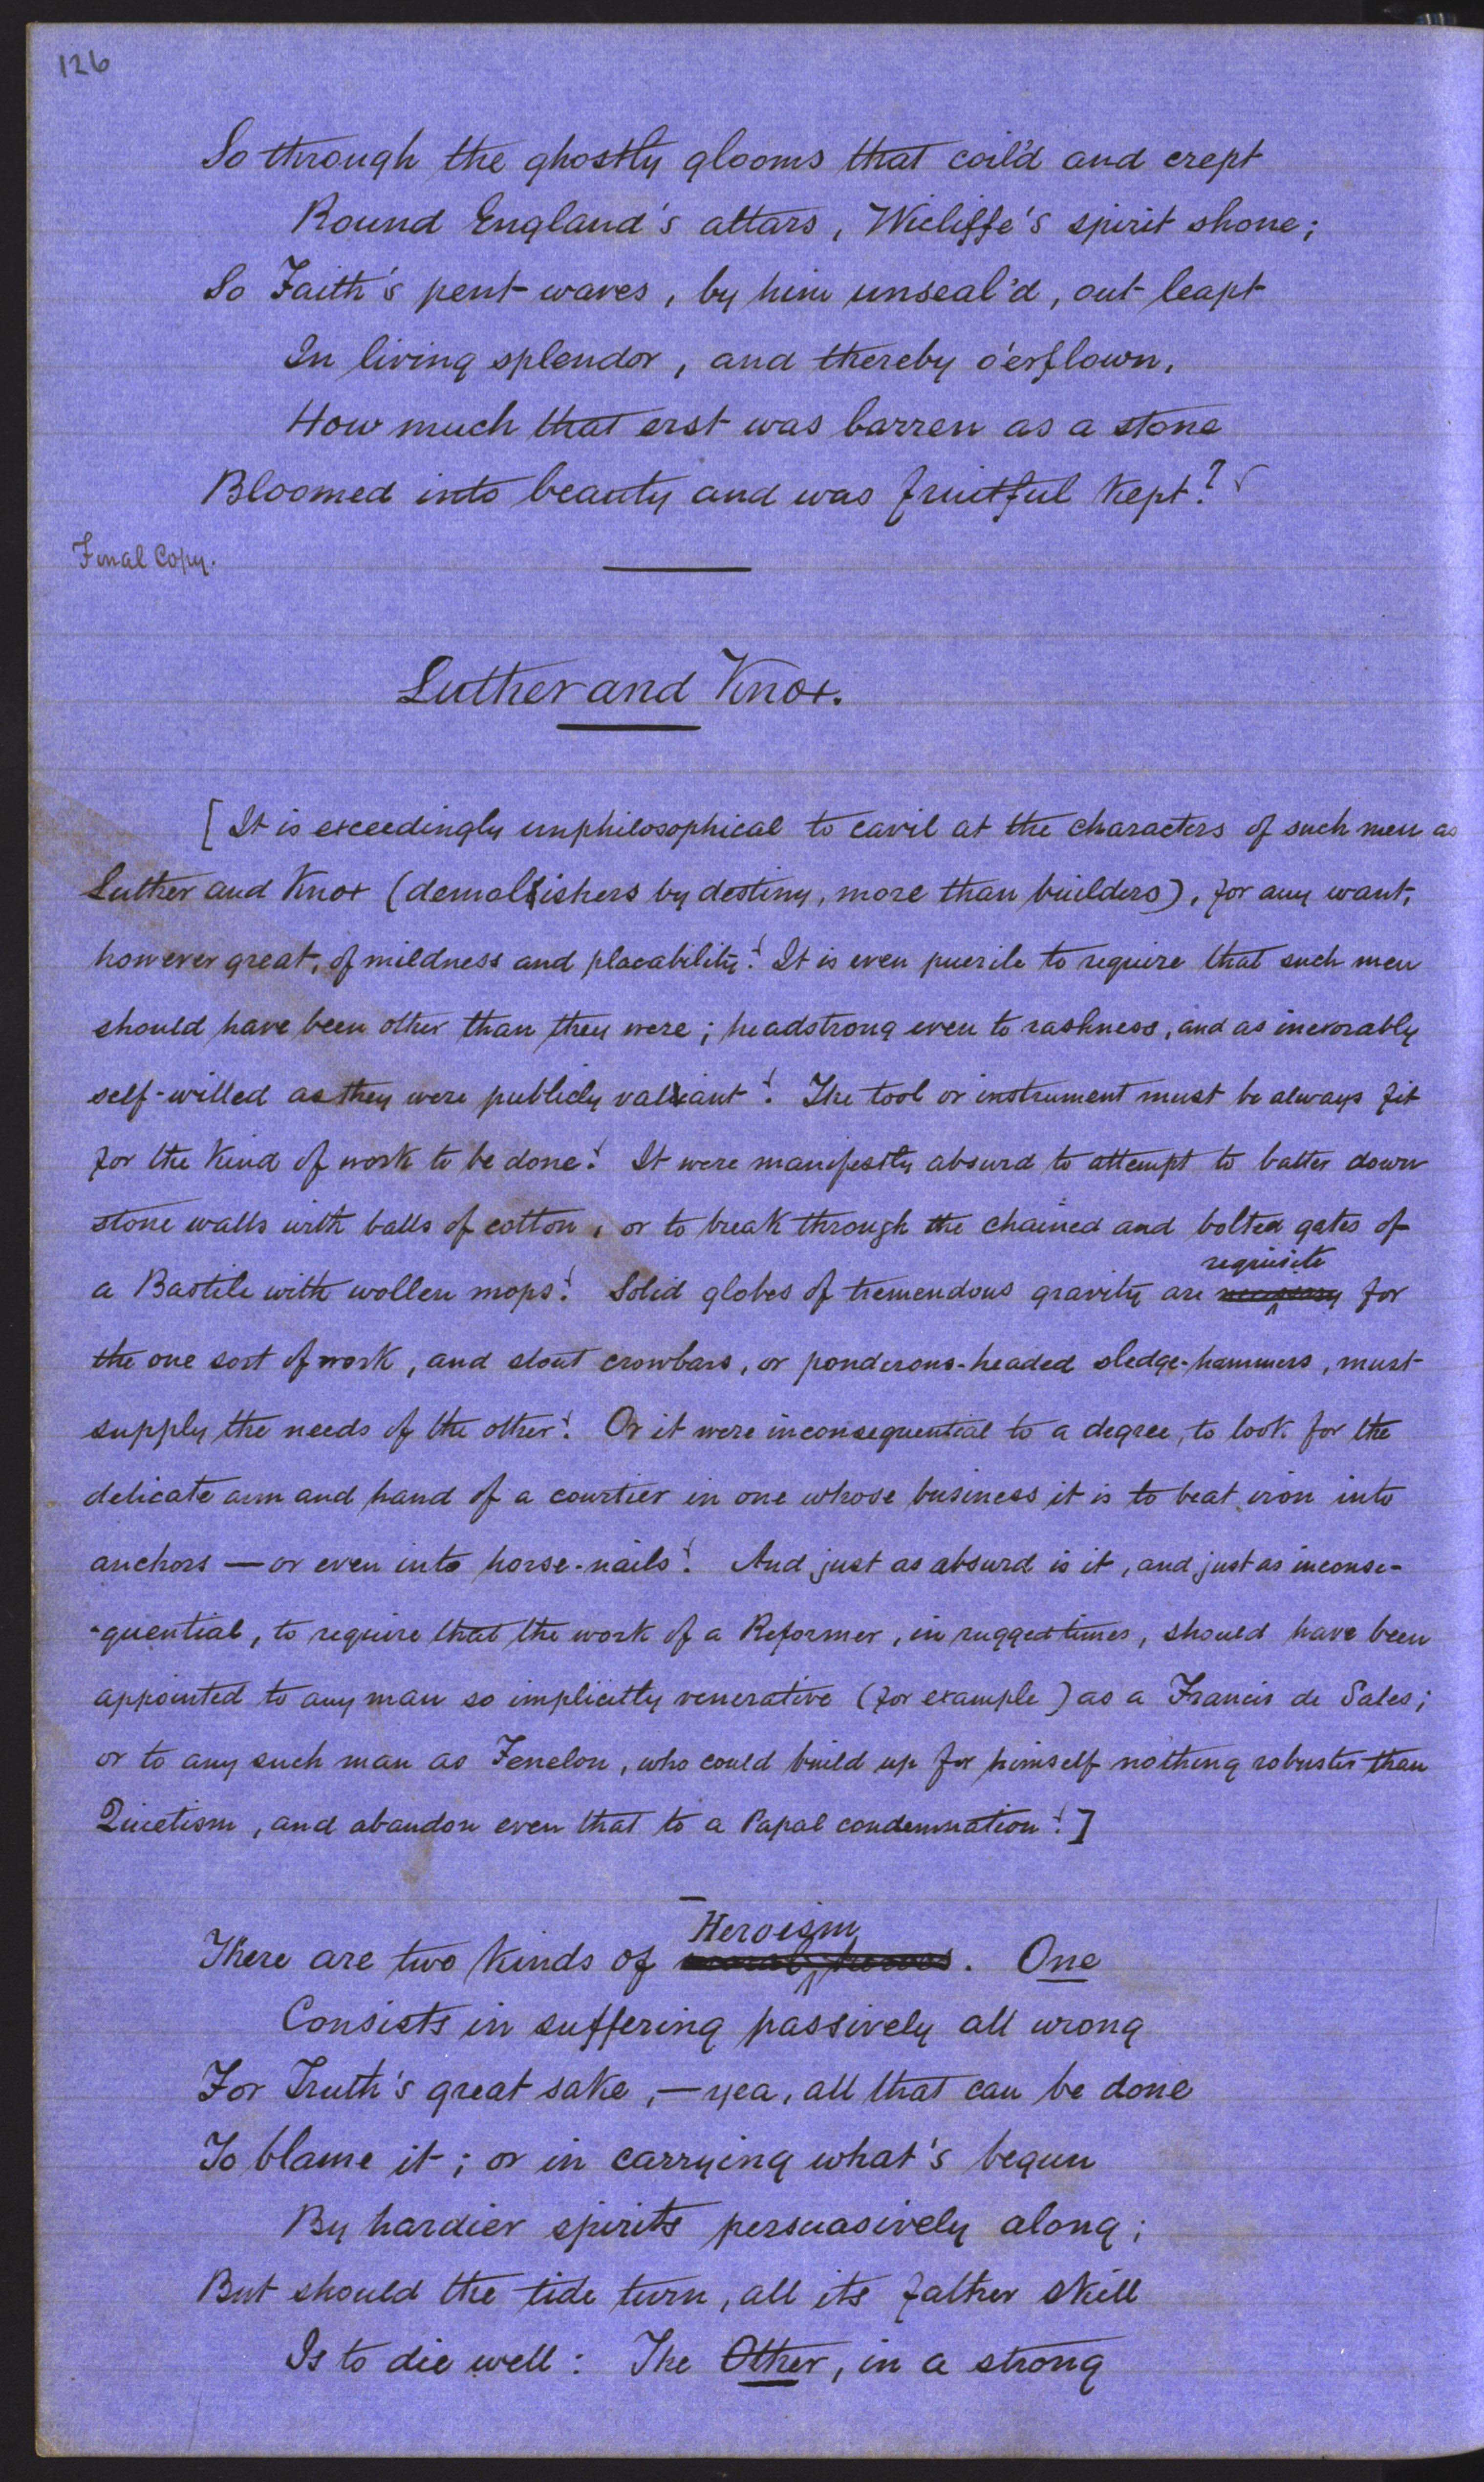 126
So through the ghostly glooms that coil'd and crept
Round England's altars, Wicliffe's spirit shone;
So Faith's pent waves, by him unseal'd, out leapt
In living splendor, and thereby o'erflown,
How much that erst was barren as a stone
Bloomed into beauty and was fruitful kept?
Final Copy.
Luther and Knox.
[It is exceedingly unphilosophical to cavil at the characters of such men as
Luther and Knox (demollishers by destiny, more than builders), for any want,
however great, of mildness and placability! It is even puerile to require that such men
should have been other than they were; headstrong even to rashness, and as inexorably
self-willed as they were publicly valiant! The tool or instrument must be always fit
for the kind of work to be done! It were manifestly absurd to attempt to batter down
stone walls with balls of cotton, or to break through the chained and bolted gates of
requisite
a Bastile with wollen mops! Solid globes of tremendous gravity are necessary for
the one sort of work, and stout crowbars, or ponderous-headed sledge-hammers, must
supply the needs of the other! Or it were inconsequential to a degree, to look for the
delicate arm and hand of a courtier in one whose business it is to beat iron into
anchors — or even into horse-nails! And just as absurd is it, and just as inconse-
-quential, to require that the work of a Reformer, in rugged times, should have been
appointed to any man so implicitly venerative (for example) as a Francis de Sales;
or to any such man as Fenelon, who could build up for himself nothing robuster than
Quietism, and abandon even that to a Papal condemnation!]
Heroism
There are two kinds of moral heroes. One
Consists in suffering passively all wrong
For Truth's great sake, — yea, all that can be done
To blame it; or in carrying what's begun
By hardier spirits persuasively along;
But should the tide turn, all its falther skill
Is to die well: The Other, in a strong